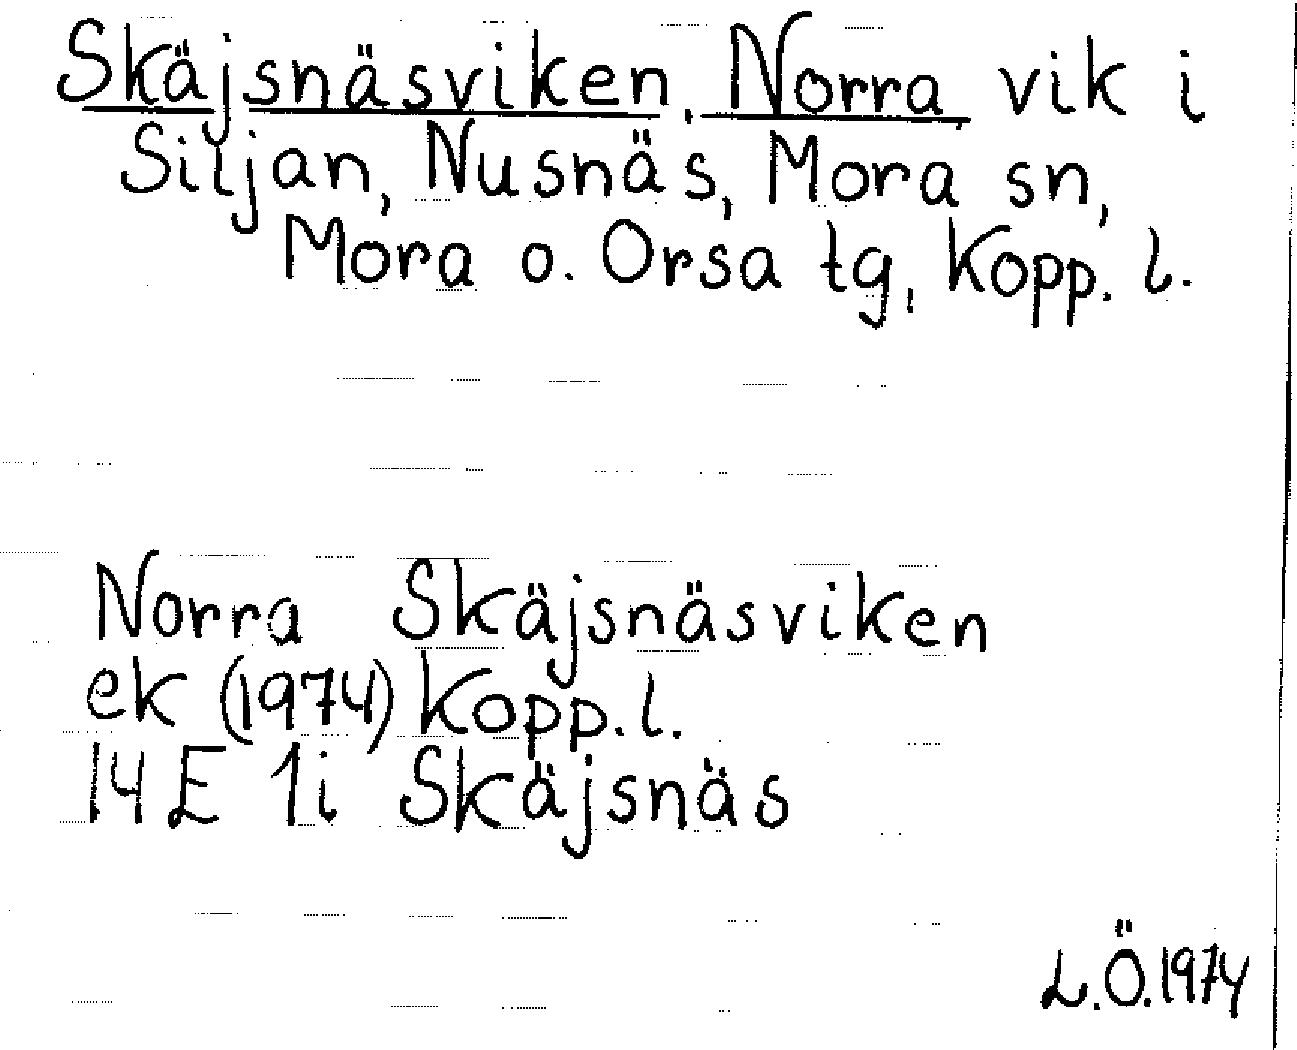 Skäjsnäsviken, Norra vik i
Siljan, Nusnäs, Mora sn,
Mora o. Orsa tg, Kopp. l.
Norra Skäjsnäsviken
ek (1974) Kopp. l.
14 E 1i Skäjsnäs
L.Ö.1974